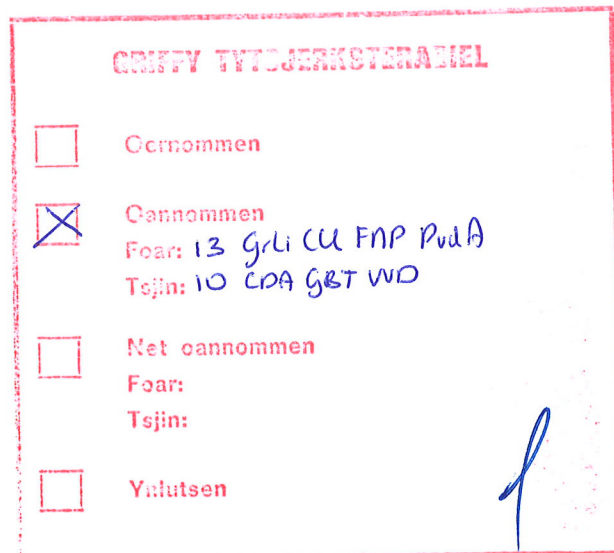 GRIFFY TYTSJERKSTERADIEL
Oernommen
Oannommen
Foar: 13 GrLi CU FNP PvdA
Tsjin: 10 CDA GBT VVD
Net oannommen
Foar:
Tsjin:
Ynlutsen